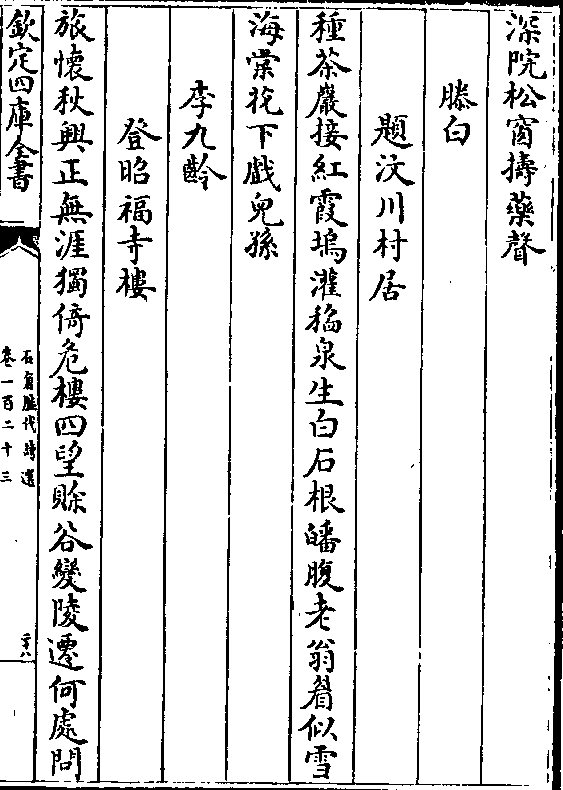 深院松窗擣藥聲
滕白
題汶川村居
種茶巖接紅霞塢灌稻泉生白石根皤腹老翁眉似雪
海棠花下戲兒孫
李九齡
登昭福寺樓
旅懷秋興正無涯獨倚危樓四望賒谷變陵遷何處問
欽定四庫全書
石倉歷代詩選
卷一百二十三
二十八